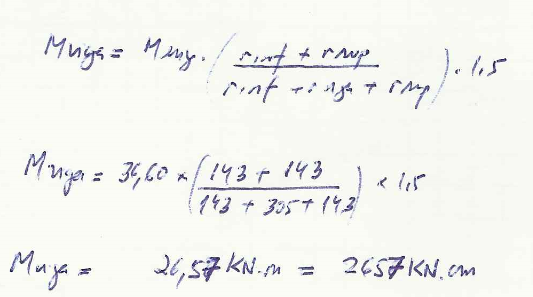 Mviga = Meng. (rinf + rsup / rinf + rviga + rsup) . 1,5
Mviga = 36,60 x (143 + 143 / 143 + 305 + 143) x 1,5
Mviga = 26,57 KN.m = 2657 KN.cm